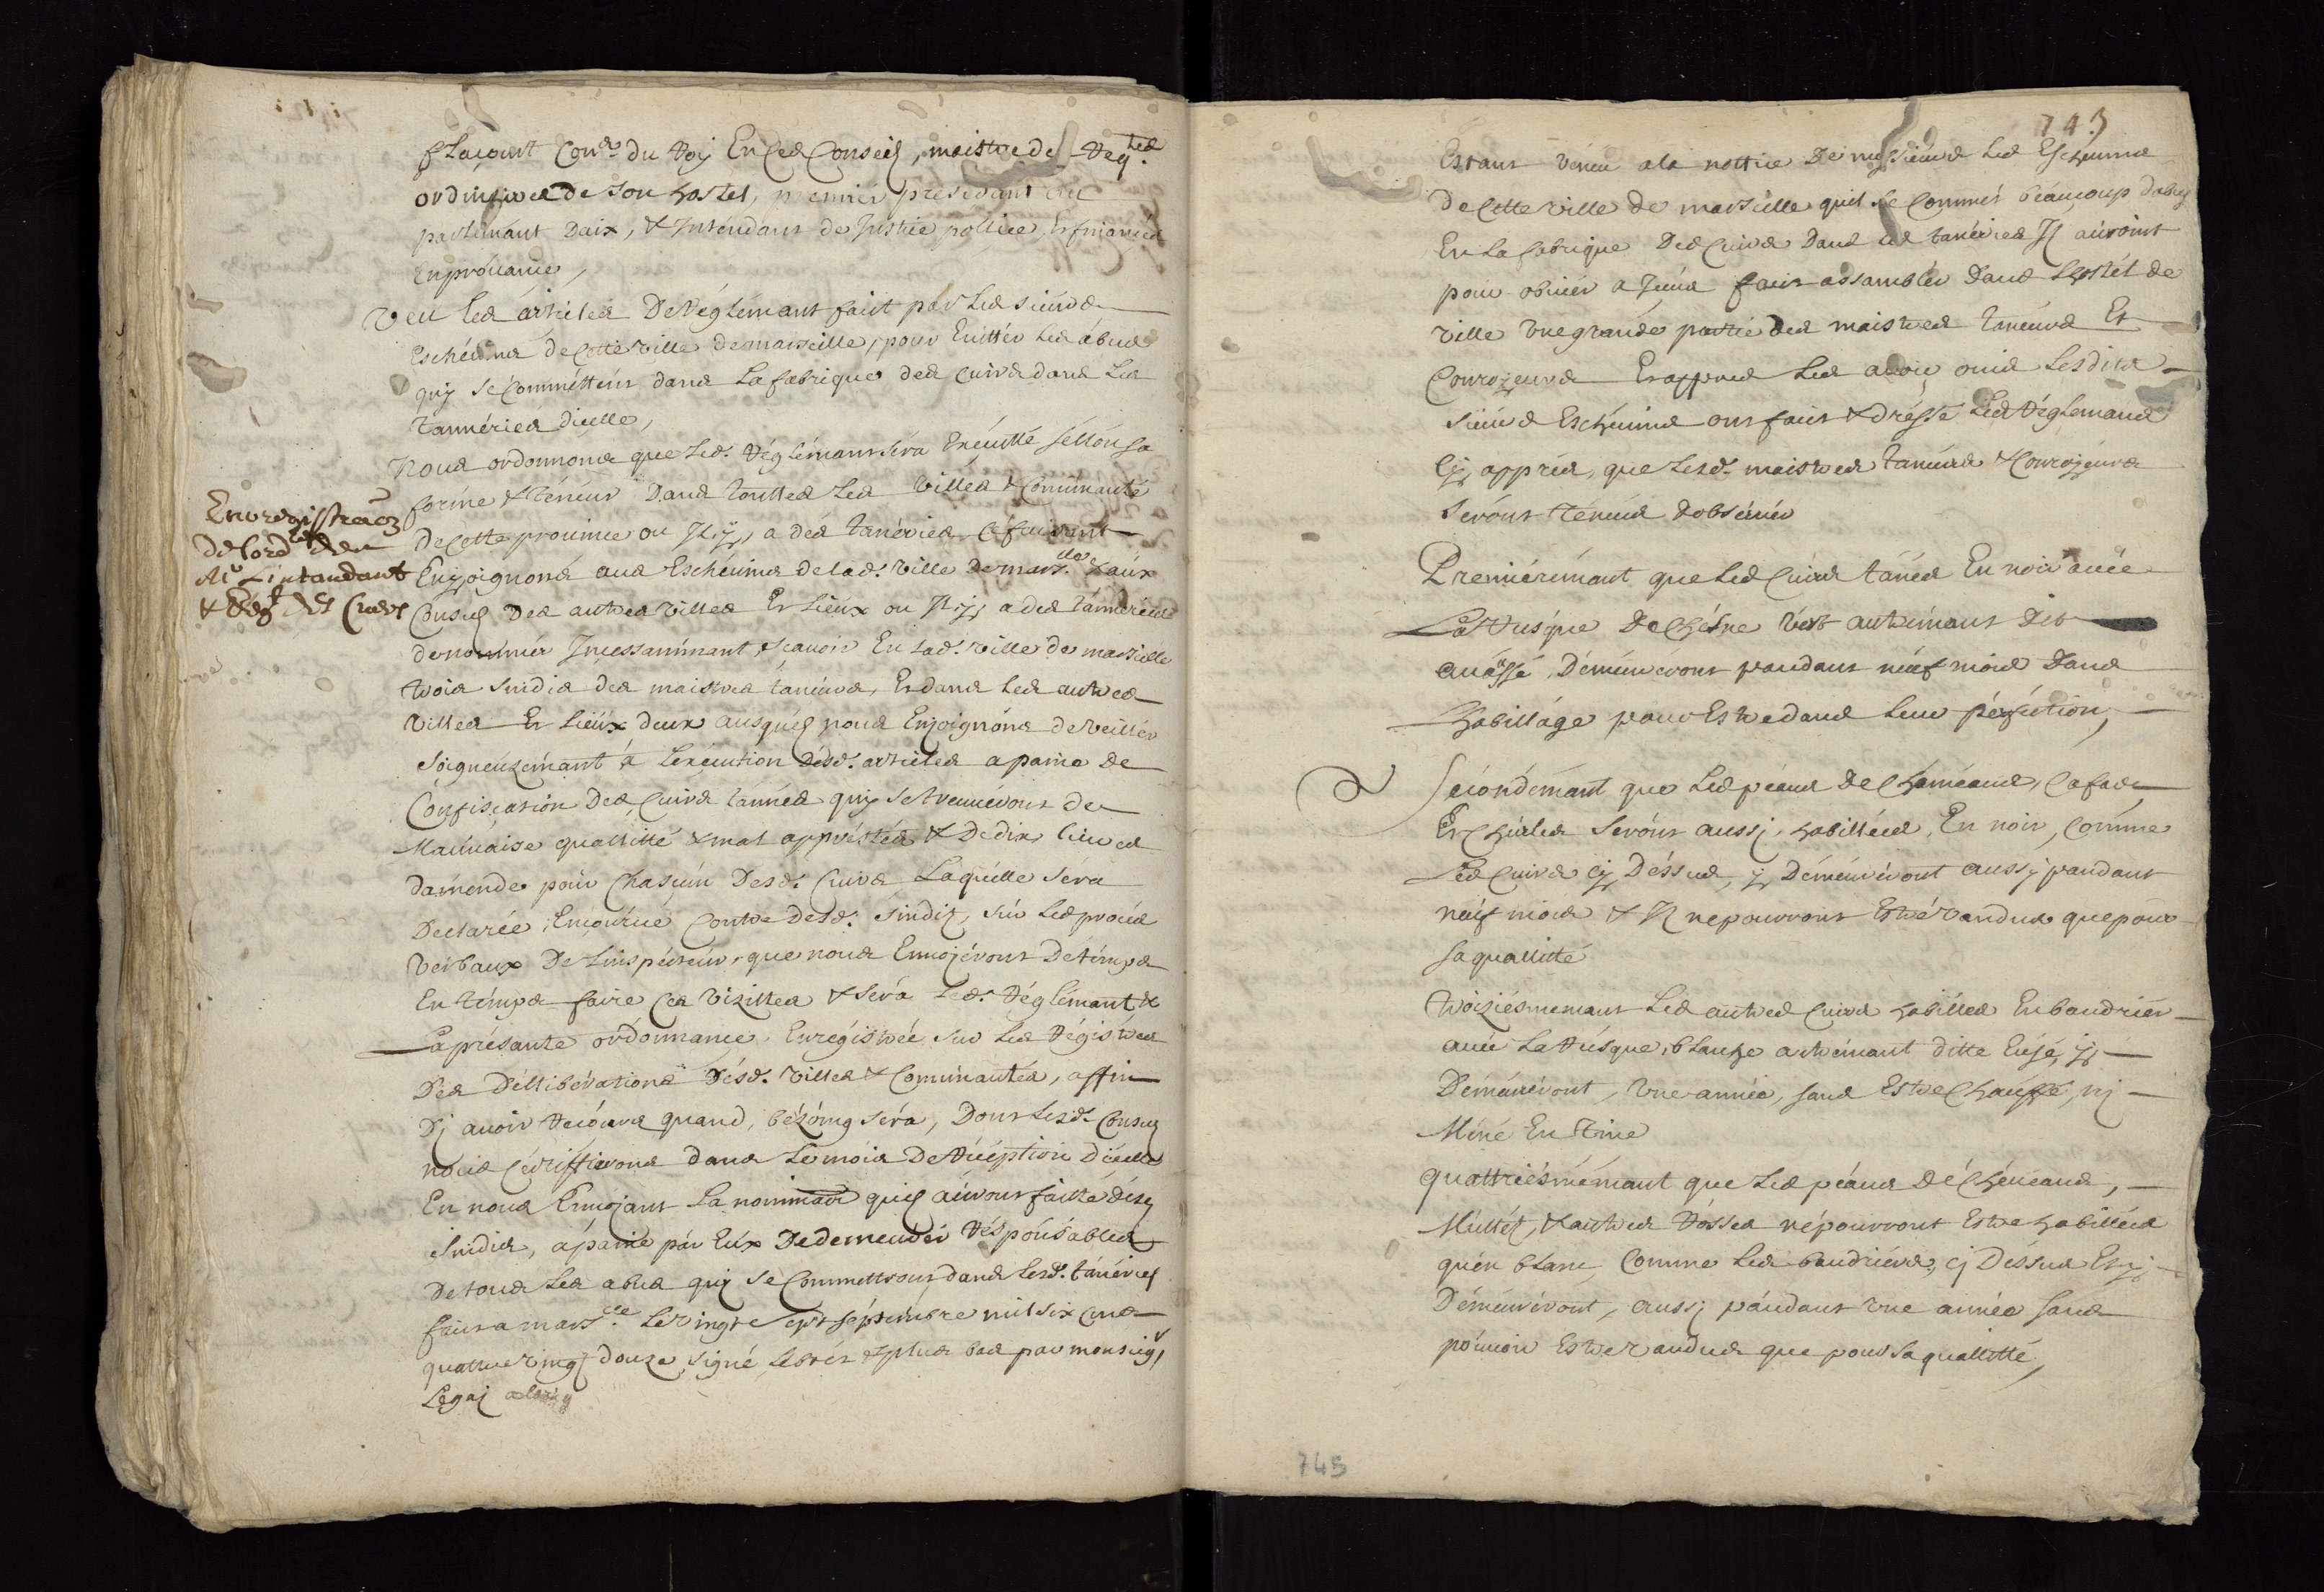 flaçourt Con.er du Roy En ses Conseils, maistre de Req.tes
ordinaires de son hostel, premier presedant au
parlemant Daix, & Intendant de Justice pollice, Et finances
En provance,
Veu les articles De Réglémant faict par Les sieurs
Eschévins de Cette ville de marseille, pour Evittér Les abus
quy se Commettent dans La fabrique des Cuirs dans Les
Tannéries dicelle,
Nous ordonnons que Led. Réglémant séra Exécuttéséllon sa
forme & téneur Dans touttes Les Villes & Communauté
De Cette province ou Il y a dés tanéries, Ce faisant
Enjoignons aus Eschévins de lad. ville de mars.lle & aux
Consuls Des autres villes Et Lieux ou Il y a des tanneries
de nommér Incessammant, scavoir En Lad. ville de marseille
trois sindics des maistres taneurs, Et dans Les autres
villes Et Lieux deux ausquels nous Enjoignons de veiller
soigneuzémant a Lexécution Désd. articles a paine de
Confiscation Des Cuirs tannés quy se trouvéront de
Mauvaise quallitté & mal appréstés & De dix livres
damende pour Chasqun Desd. Cuirs Laquelle séra
Déclarée Encourue Contre Desd. sindiz, sur Les procés
verbaux De Linspécteur, que nous Envoyérons De témps
En témps faire Ces vizittes & sera Led. Réglémant &
La présante ordonnance Enrégistrée sur Les Régistres
Dés Déllibérations Désd. villes & Communautés, affin
Dy avoir Recours quand bézoing séra, Dont Lesd. Consuls
nous Cértiffierons dans Le mois De Récéption Dicelle
En nous Envoyant La nomination quils auront faitte désd.
sindics, a paine par Eux De demeurér Résponsables
De tous Les abus quy se Commettront dans Lesd. tanéries
fait a mars.lle Le vingt sept séptémbre mil six cens
quattre vingt douze, signé Lebrét & plus bas par monseig.r
Legaj a lorig
Enregistrãon
de lord.ce de
M.r Lintandant
& Reg.t des Cuirs
743
Estant vénu a la nottice De messieurs Les Eschevins
De Cette ville de marseille quil se Commét béaucoup dabus
En La fabrique Des Cuirs Dans les tanéries Il auroint
pour obvier a Iceux fait assamblér Dans Lhostél de
ville Une grande partie des maistres taneurs Et
Couroyeurs Et apprés Les avoir ouis Lesdits
sieurs Eschevins ont fait & dréssé Les Réglemans
Cy apprés, que Lesd. maistres taneurs & Couroyeurs
seront ténus dobsérvér
Premiérémant que Les Cuirs tanés En noir avéc
La Rusque De Chésne vért autrémant Dit
avassé Déméuréront pandant neuf mois Dans
Lhabillage pour Estre dans leur pérféction,
Sécondémant que Les péaux De Chaméaux, Cafas
Et Chivles seront aussy habillées En noir, Comme
Les Cuirs Cy Déssus, y Déméuréront aussy pandant
neuf mois & Il ne pourront Estré vandus que pour
sa quallitté
Troiziésmemant Les autres Cuirs habillés En baudriér
avéc La Rusque blanche autrémant ditte Eusé, y
Déméuréront, Une année, sans Estre Chauffé, ny
Méné En Tine
Quattriésmémant que Les péaux Dé Chévaux,
Mulléts, & autres Rosses né pourront Estre habillées
quén blanc Comme Les baudriérs, Cy Déssus Et y
Déméuréront, aussy péndant Une année sans
pouvoir Estre vandus que pour sa quallitté,
743